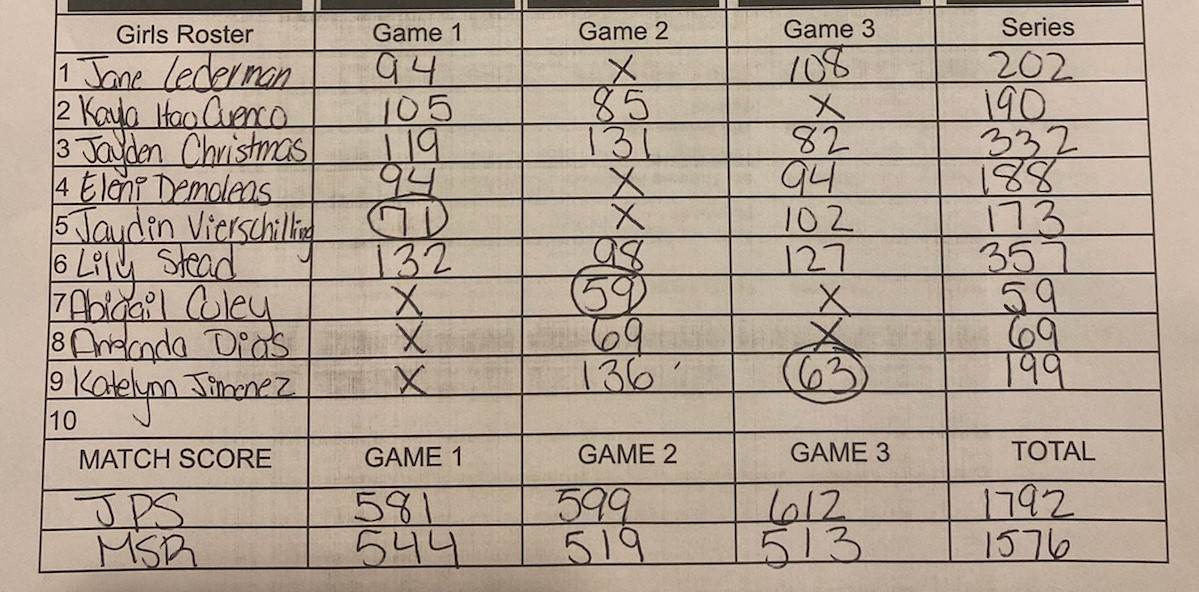 Girls Roster Game 1 Game 2 Game 3 Series
1 Jane Lederman 94 X 108 202
2 Kayla Hao Cuenco 105 85 X 190
3 Jayden Christmas 119 131 82 332
4 Eleni Demoleas 94 X 94 188
5 Jaydin Vierschilling 71 X 102 173
6 Lily Stead 132 98 127 357
7 Abigail Coley X 59 X 59
8 Dias X 69 X 69
9 Katelynn Jimenez X 136 63 199
10
MATCH SCORE GAME 1 GAME 2 GAME 3 TOTAL
JPS 581 599 612 1792
MSR 544 519 513 1576